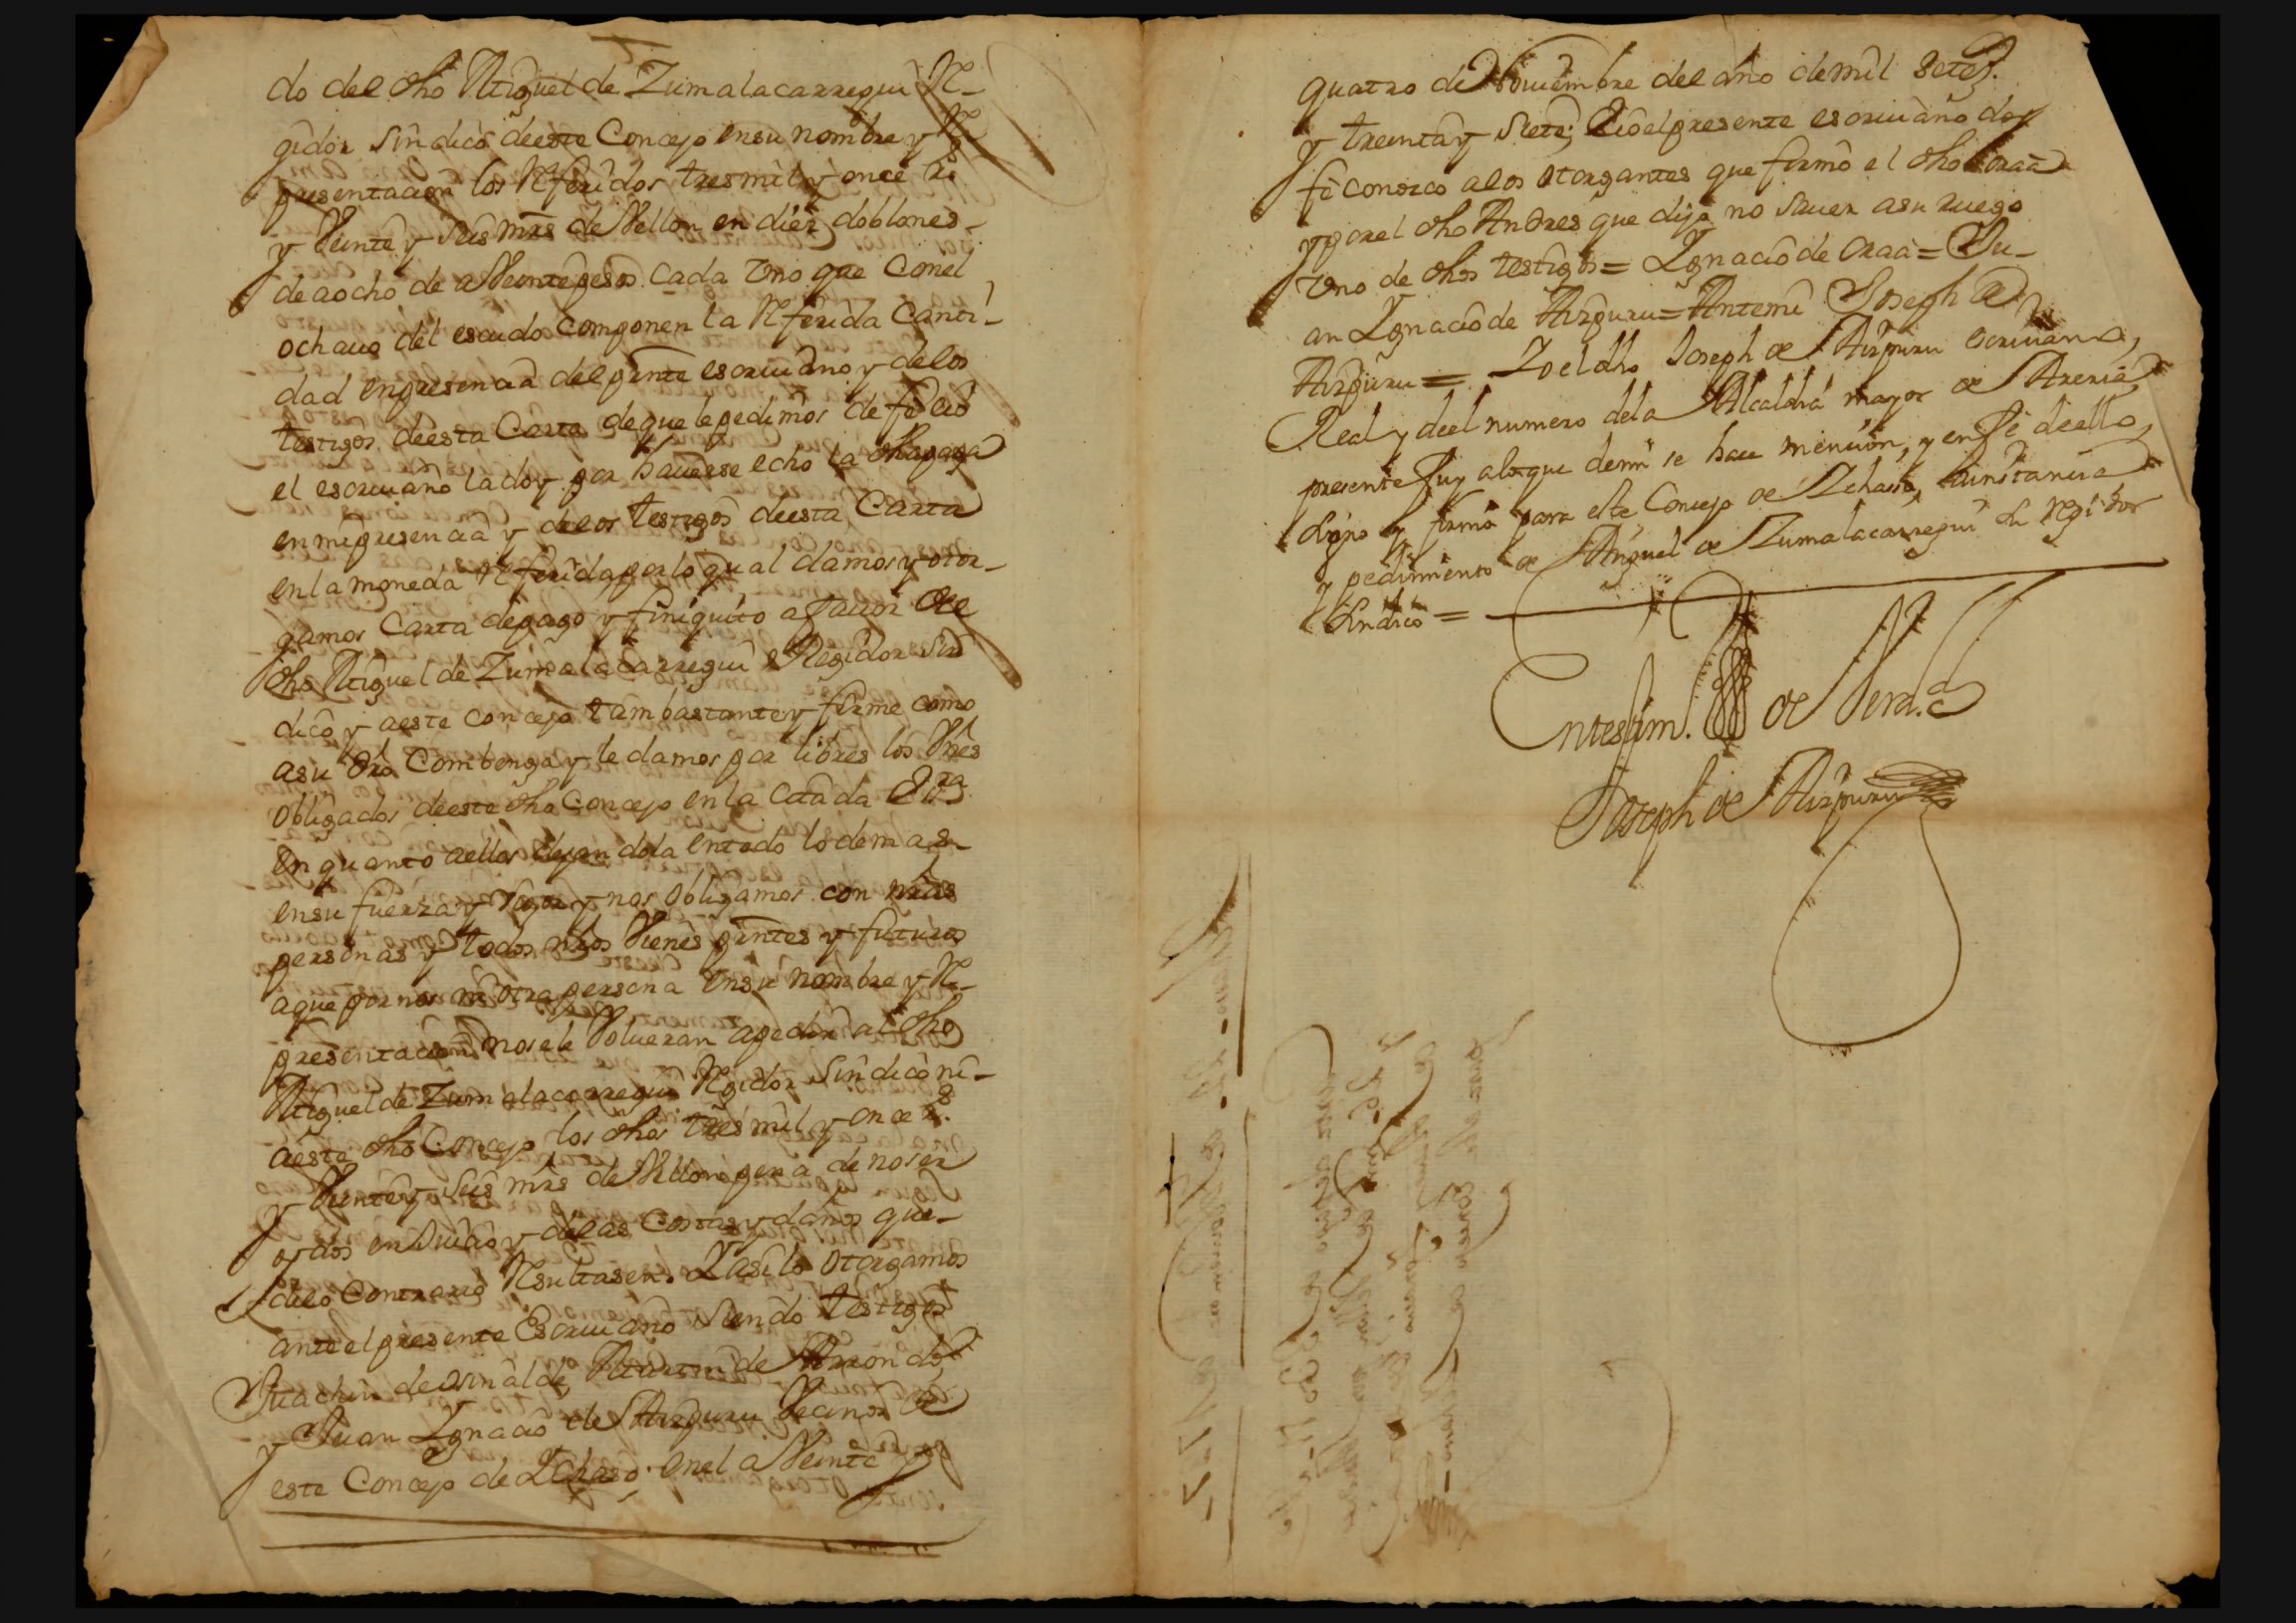 do del dho Miguel de Zumalacarregui Re-
gidor sindico deeste Concejo ensu nombre y Re
presentacion los Referidos tres mil y once Rs
y Veinte y seis mrs de Vellon en diez doblones
de aocho de aVeinte pesos cada Uno que Conel
ochauo del escudo componen la Referida Canti-
dad enpresencia delpnte escriuano y delos
testigos deesta Carta deque lepedimos de fe eio
el escriuano lado y por hauerse echo la dha paga
enmipresencia y delos testigos deesta Carta
enla moneda Referida porlo qual damos y otor-
gamos Carta depago y finiquito afauor del
dho Miguel de Zumalacarregui Regidor sin
dico y aeste concejo tambastante y firme como
asu dro Combenga y le damos por libres los Vnes
obligados deeste dho Concejo enla Citada Essra
en quanto aellos dejandola entodo lodemas
ensu fuerza y Vigor y nos obligamos con nras
personas y todos nros Vienes pntes y futuros
aque por nos ni otra persona ensu nombre y Re-
presentacion nosele Volueran apedir al dho
Miguel de Zumalacarregui Regidor sindico ni-
aeste dho Concejo los dhos tres mil y once Rs
y Veinte y seis mrs de Vellon pena de noser
oydos enJuicio y delas Costas y daños que-
delo Contrario Resultasen. Y asilo otorgamos
ante el presente Escriuano siendo testigos
Juachin de Osinalde, Martin de Arrondo
y Juan Ygnacio de Aizpuru Vecinos de
este Concejo de Ychaso. enel a Veinte y
quatro de Nouiembre del año demil setezs
y treinta y siete; Eio elpresente escriuano doy
fe conozco alos otorgantes que firmo el dho Oraa
y porel dho Andres que dijo no sauer asu ruego
Uno de dhos testigos = Ygnacio de Oraa = Ju-
an Ygnacio de Aizpuru = Antemi Joseph de
Aizpuru = Io el dho Joseph de Aizpuru escriuano
Real y deel numero dela Alcaldia mayor de Areria
presente fuy alo que demi se hace mencion, y enfe deello
signo y firmo para este Concejo de Ychasso, ainstancia
y pedimiento de Miguel de Zumalacarregui su regidor
sindico =
Entestim. de Verd.d
Joseph de Aizpuru